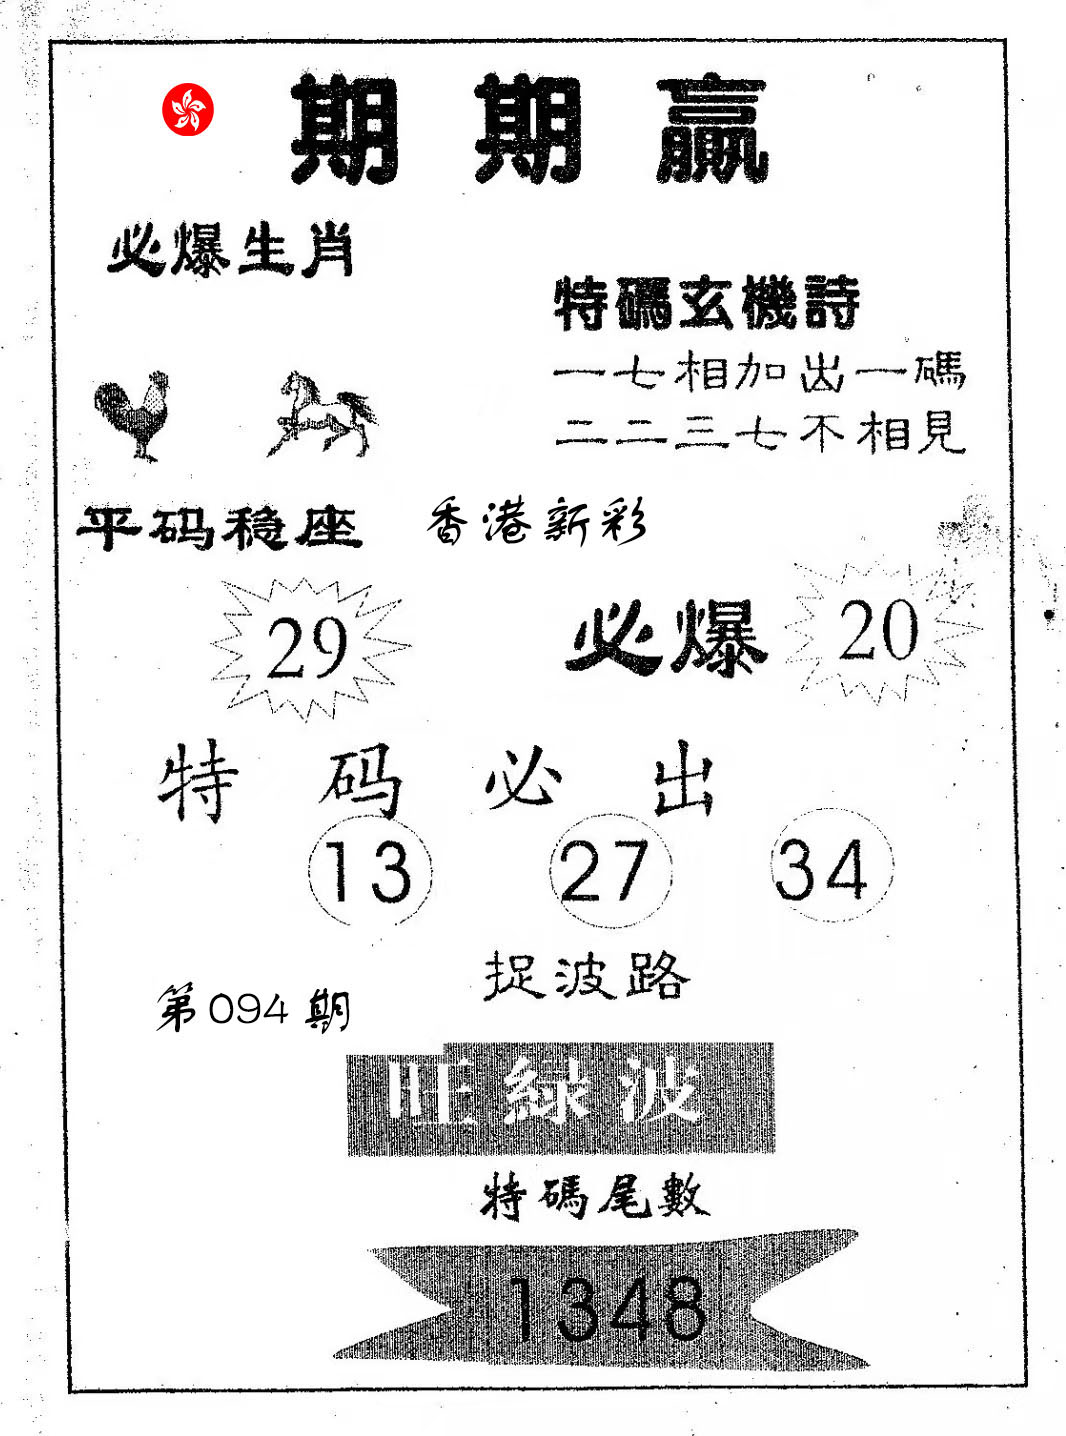 期期赢
必爆生肖
特碼玄機詩
一七相加出一碼
二二三七不相見
平码稳座
香港新彩
29
必爆
20
特码必出
13 27 34
捉波路
第094期
旺緑波
特碼尾數
1348